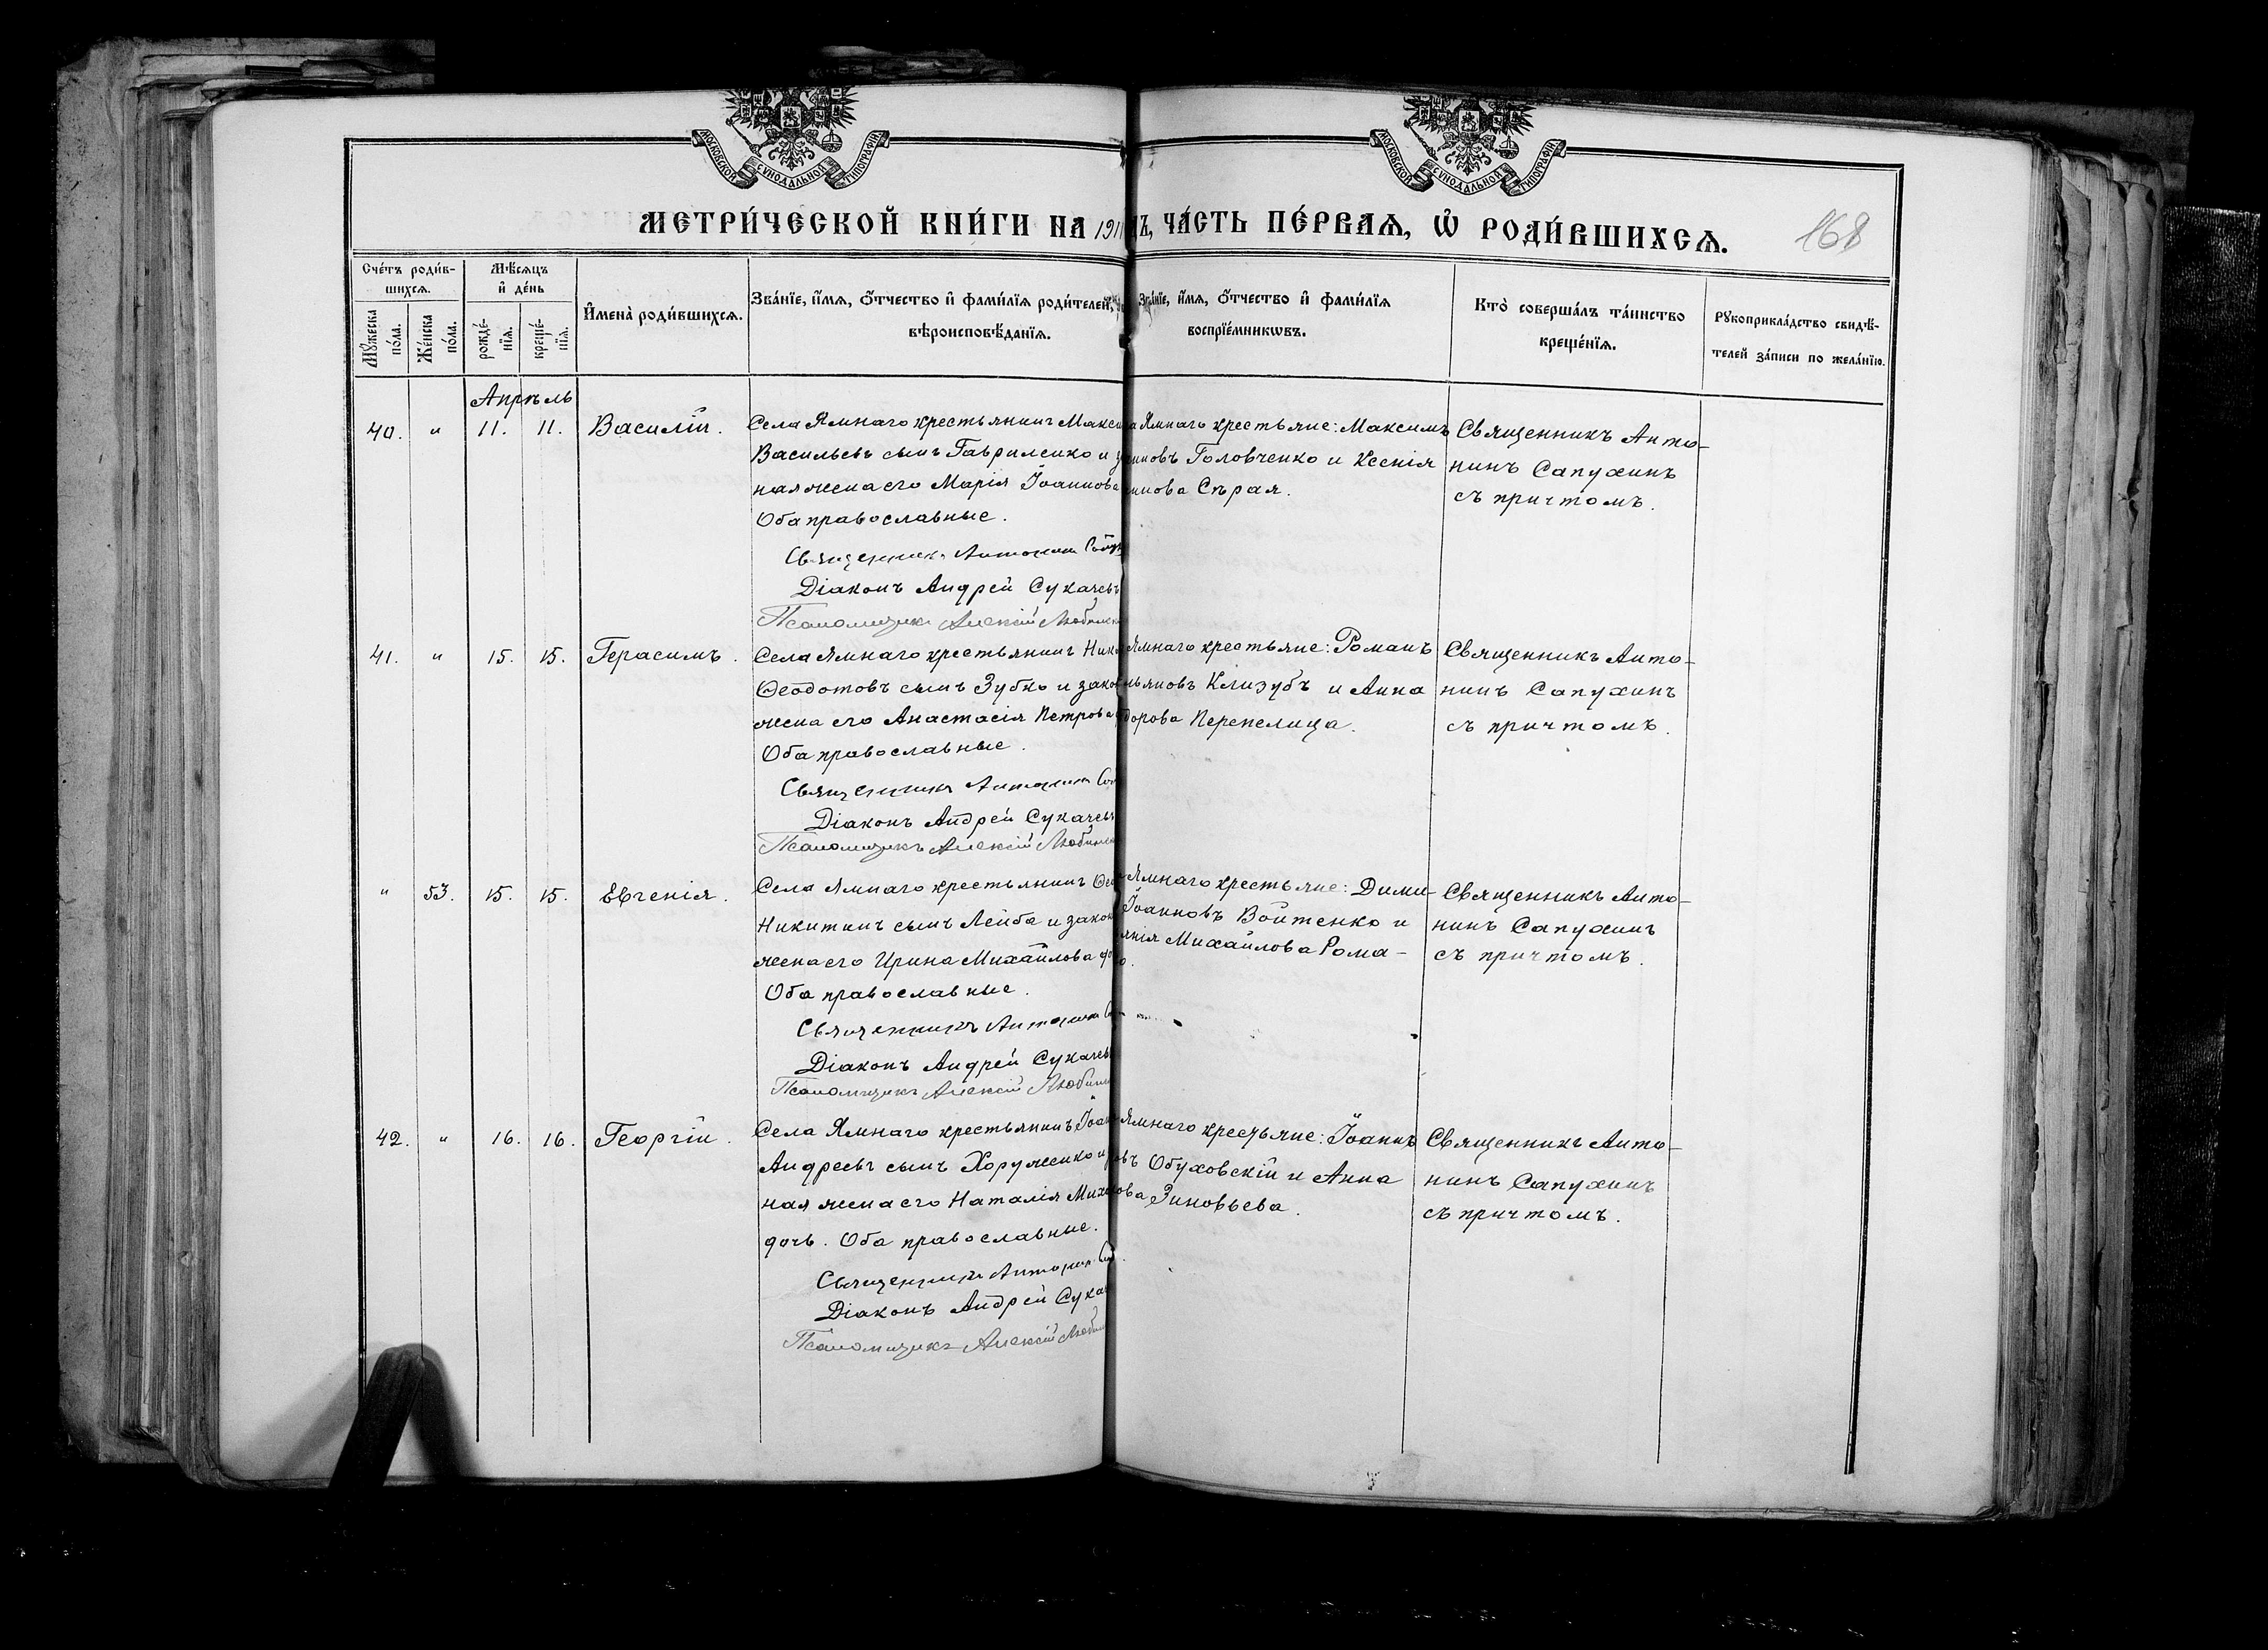 МОСКОВСКОЙ СУНОДАЛЬНОЙ ТИПОГРАФІИ
МОСКОВСКОЙ СУНОДАЛЬНОЙ ТИПОГРАФІИ
МЕТРИ́ЧЕСКОЙ КНИ́ГИ НА 191
Ъ, ЧА́СТЬ ПЕ́РВАЯ, Ѽ РОДИ́ВШИХСЯ.
168
Сче́тъ роди́в-
шихся.
Мѣ́сяцъ
и҆ де́нь
Мꙋ́жеска по́ла.
Же́нска по́ла.
рожде́-
нїя.
креще́-
нїя.
И҆мена̀ роди́вшихся.
Зва́нїе, и҆́мя, ѻ҆́тчество и҆ фами́лїя роди́телей,
вѣроисповѣ́данїя.
Зва́нїе, и҆́мя, ѻ҆́тчество и҆ фами́лїя
воспрїе́мникѡвъ.
Кто̀ соверша́лъ та́инство
креще́нїя.
Рꙋкоприкла́дство свидѣ́-
телей за́писи по жела́нїю.
Апрѣль
40. " 11. 11. Василій.
Села Ямнаго крестьянинъ Макси
Васильевъ сынъ Гавриленко и з
ная жена его Марія Іоаннова
Оба православные.
Священникъ Антонинъ
Діаконъ Андрей Сукачевъ
Псаломщикъ Алексій
а Ямнаго крестьяне: Максимъ
нновъ Головченко и Ксенія
ннова Сѣрая.
Священникъ Анто-
нинъ Сапухинъ
съ причтомъ.
41. " 15. 15. Герасимъ.
Села Ямнаго крестьянинъ Ник
Ѳеодотовъ сынъ Зубко и закон
жена его Анастасія Петрова
Оба православные.
Священникъ Антонинъ
Діаконъ Андрей Сукачевъ
Псаломщикъ Алексій
Ямнаго крестьяне: Романъ
льяновъ Клизубъ и Анна
дорова Перепелица.
Священникъ Анто-
нинъ Сапухинъ
съ причтомъ.
" 53. 15. 15. Евгенія.
Села Ямнаго крестьянинъ Ѳе
Никитинъ сынъ Лейба и закон
жена его Ирина Михайлова до
Оба православные.
Священникъ Антонинъ
Діаконъ Андрей Сукачевъ
Псаломщикъ Алексій
Ямнаго крестьяне: Дими-
Іоанновъ Войтенко и
анія Михайлова Рома-
о.
Священникъ Анто-
нинъ Сапухинъ
съ причтомъ.
42. " 16. 16. Георгій.
Села Ямнаго крестьянинъ Іоан
Андреевъ сынъ Хоруженко и
ная жена его Наталія Миха
дочь. Оба православные.
Священникъ Антонинъ
Діаконъ Андрей Сукач
Псаломщикъ Алексій
Ямнаго крестьяне: Іоаннъ
овъ Обуховскій и Анна
ова Зиновьева.
Священникъ Анто-
нинъ Сапухинъ
съ причтомъ.